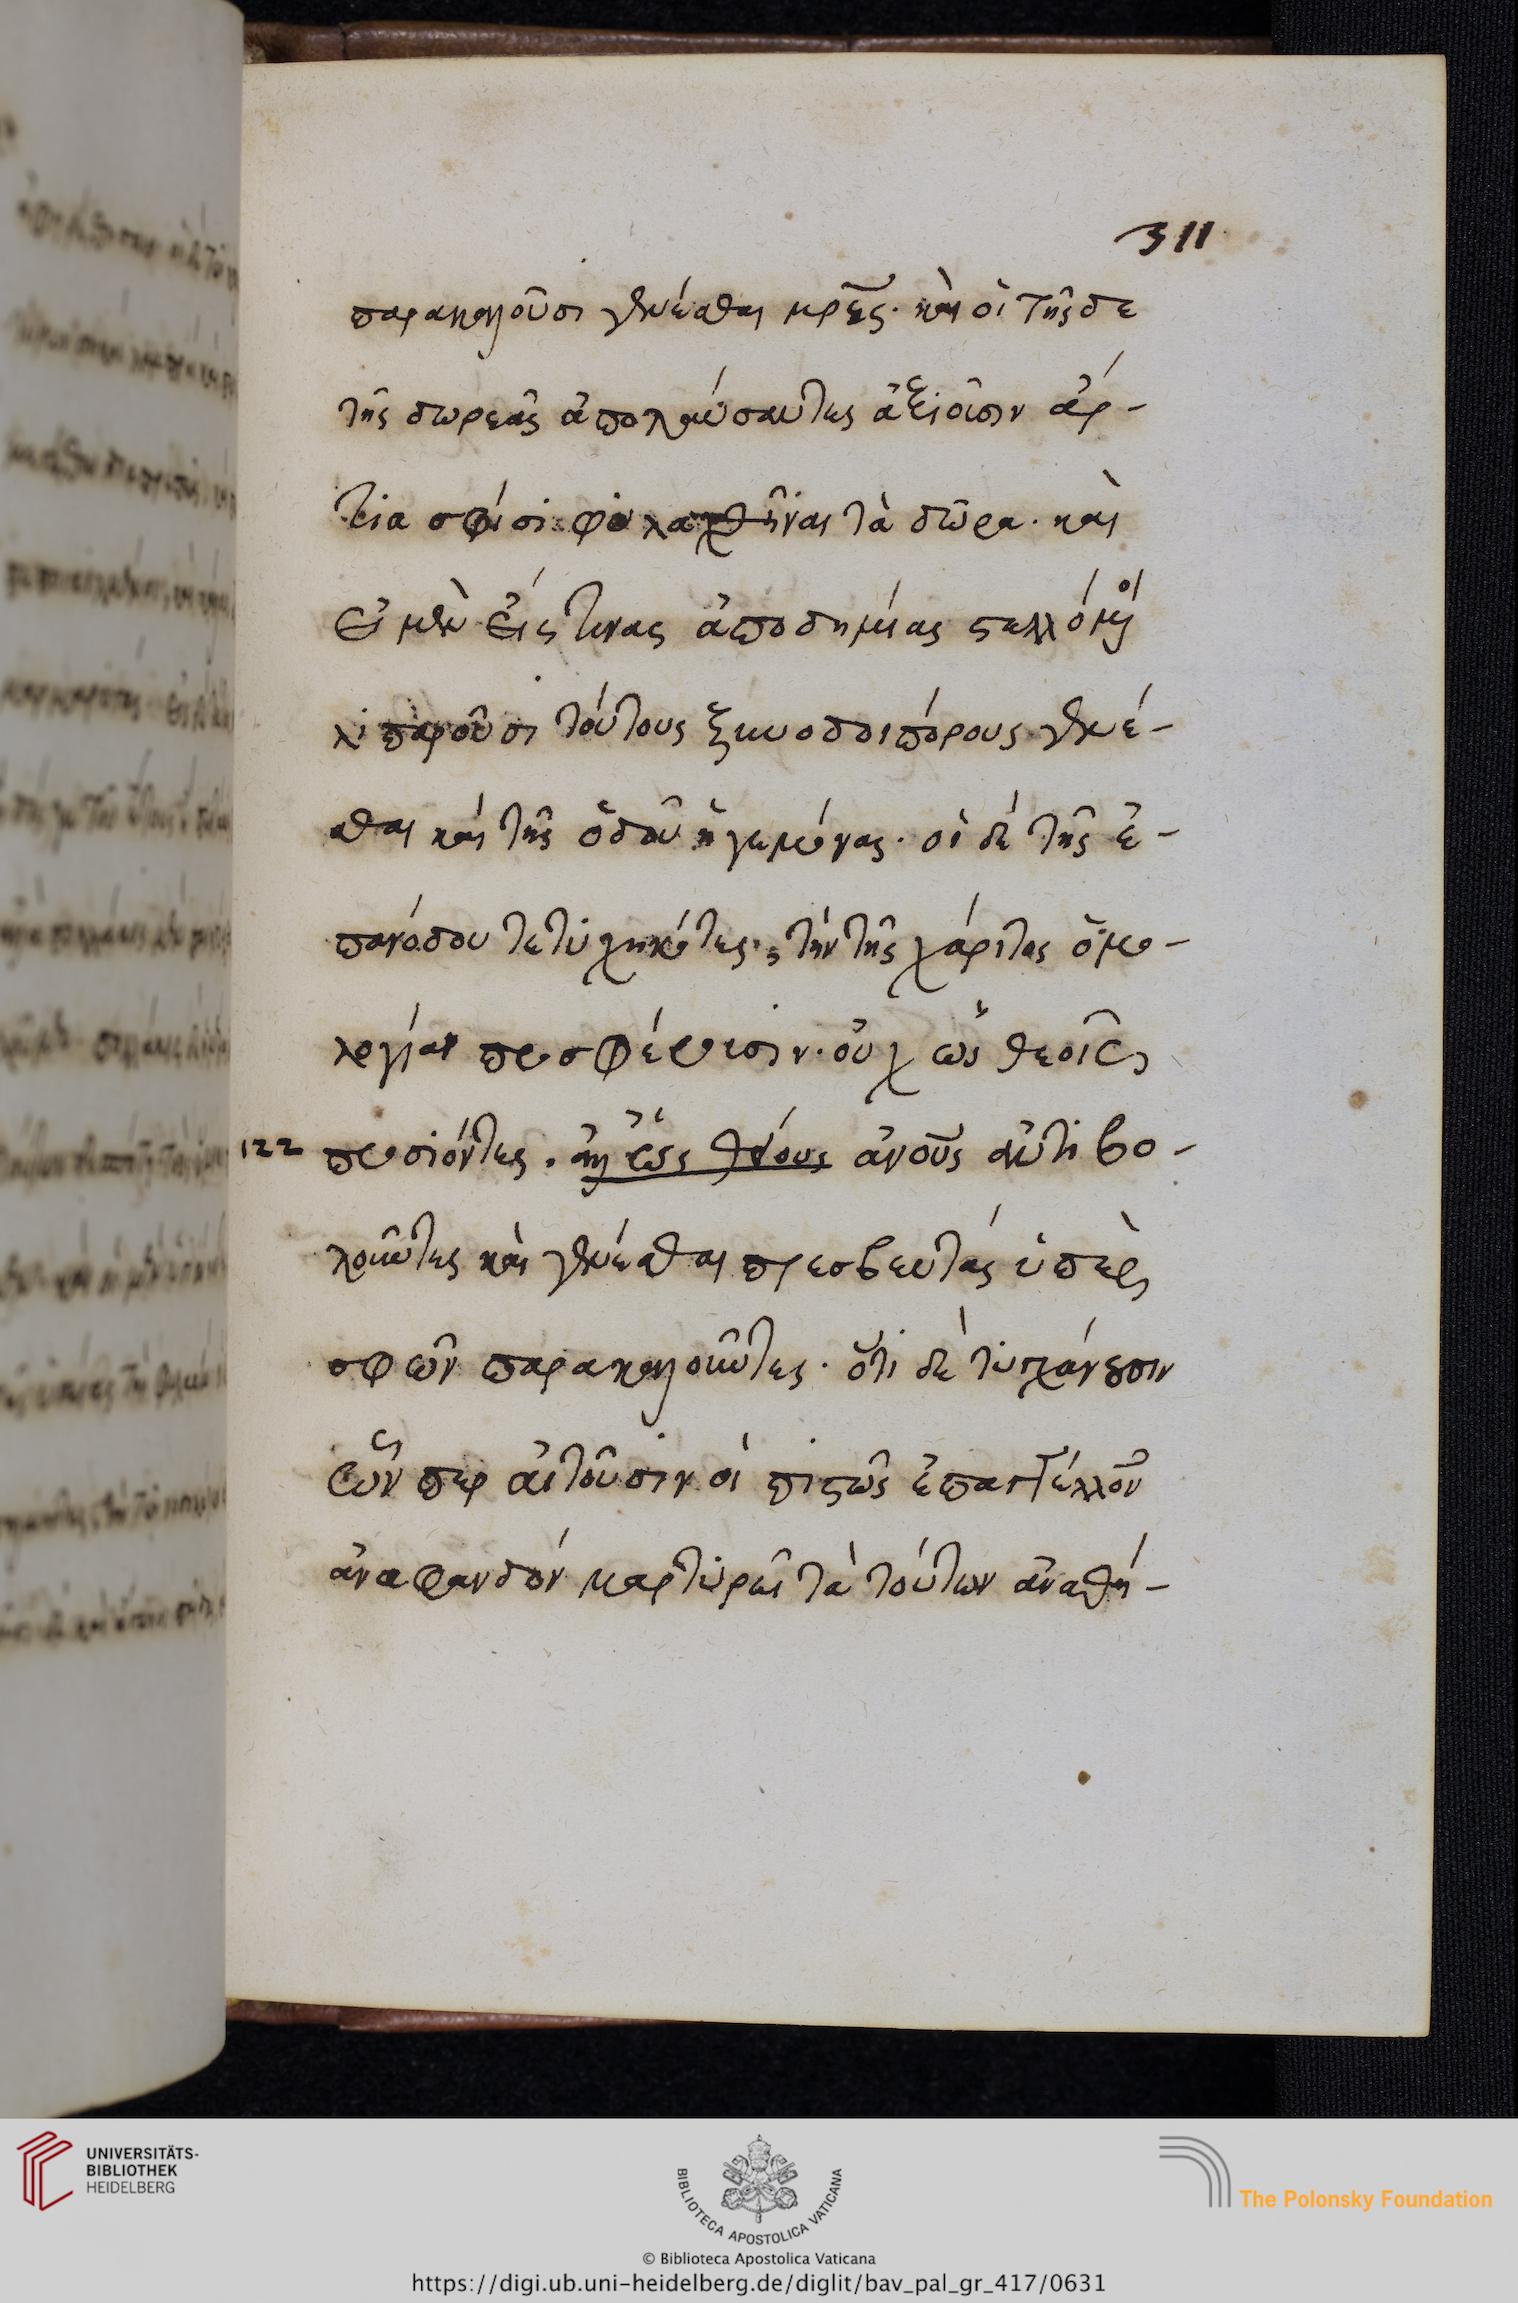 311
παρακαλοῦσι γενέσθαι μρ̅ες· καὶ οἱ τῆσδε
τῆς δωρεᾶς ἀπολαύσαντες ἀξιοῦσιν ἄρ-
τια σφίσι φυλαχθῆναι τὰ δῶρα· καὶ
οἱ μὲν εἴς τινας ἀποδημίας στελλόμενοι
λιπαροῦσι τούτους ξυνοδοιπόρους γενέ-
σθαι καὶ τῆς ὁδοῦ ἡγεμόνας· οἱ δὲ τῆς ἐ-
πανόδου τετυχηκότες, τὴν τῆς χάριτος ὁμο-
λογίαν προσφέρουσιν· οὐχ ὡς θεοῖς
122 προσιόντες· ἀλλ' ὡς θείους ἀν̅ο̅υς ἀντιβο-
λοῦντες καὶ γενέσθαι πρεσβευτὰς ὑπὲρ
σφῶν παρακαλοῦντες· ὅτι δὲ τυγχάνουσιν
ὧνπερ αἰτοῦσιν οἱ πιστῶς ἐπαγγέλλον
ἀναφανδόν μαρτυρεῖ τὰ τούτων ἀναθή-
UNIVERSITÄTS-
BIBLIOTHEK
HEIDELBERG
BIBLIOTECA APOSTOLICA VATICANA
The Polonsky Foundation
© Biblioteca Apostolica Vaticana
https://digi.ub.uni-heidelberg.de/diglit/bav_pal_gr_417/0631